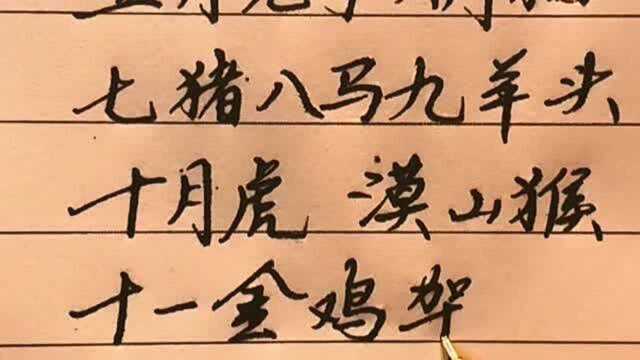 五月兔子
七猪八马九羊头
十月虎 漠山猴
十一金鸡架